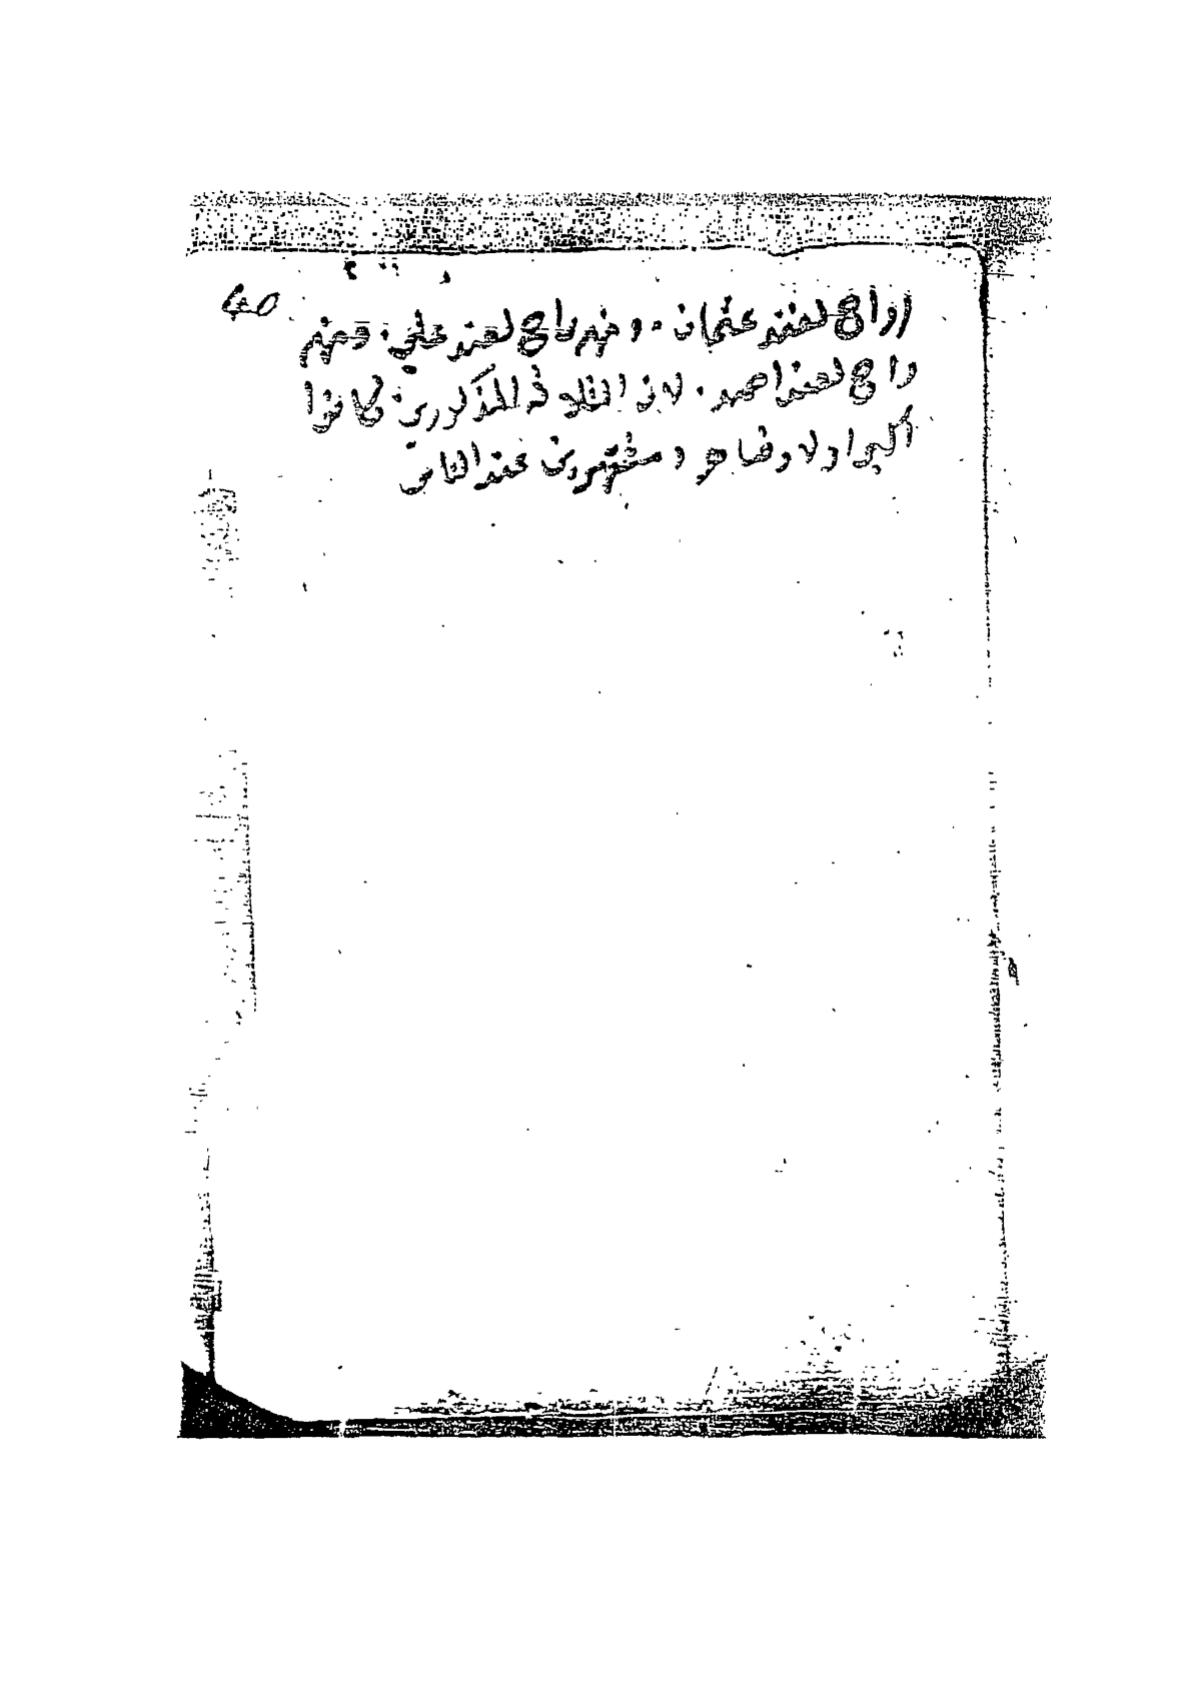 40
ارواح لعند عثمان . ومنهم راح لعند علي . ومنهم
راح لعند احمد . لان الثلاثة المذكورين كانوا
أكبر اولاد وضاهر و مشتهرين عند الناس